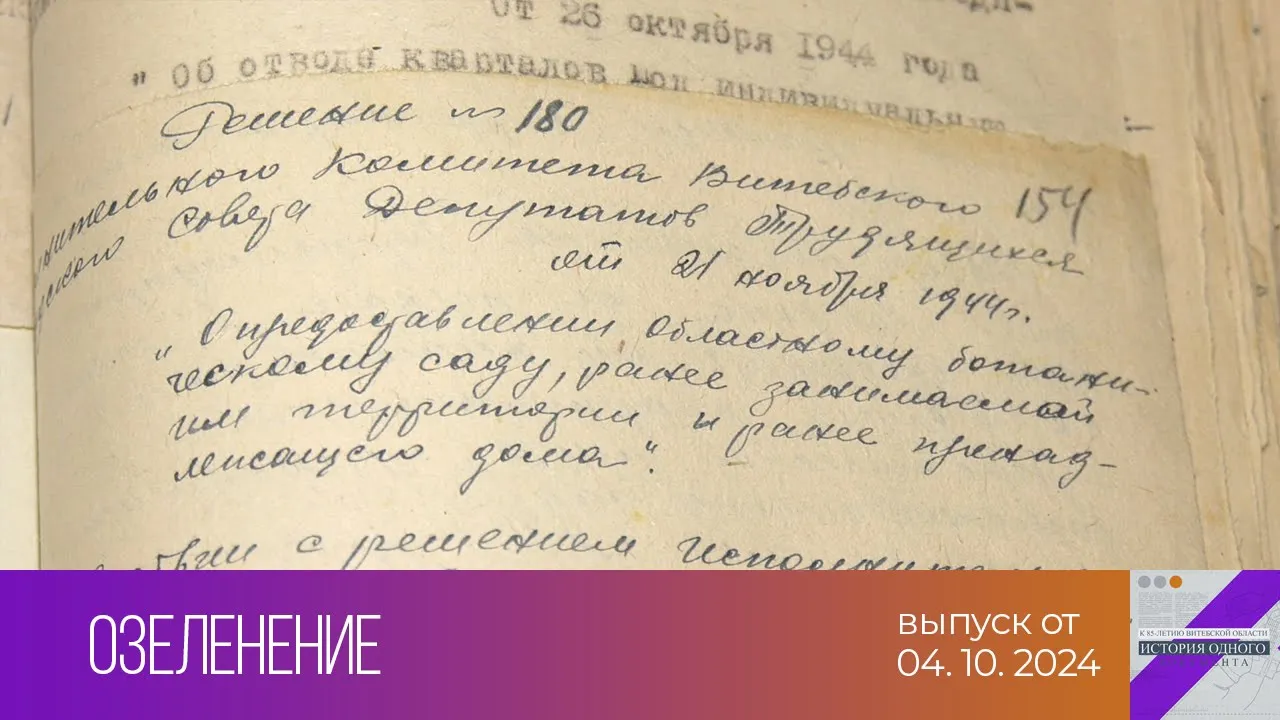 от 26 октября 1944 года
" Об отводе кварталов под индивидуальные
Решение № 180
нительного Комитета Витебского 154
ского Совета Депутатов Трудящихся
от 21 ноября 1944 г.
" О предоставлении Областному ботани-
ческому саду, ранее занимаемой
им территории и ранее принад-
лежащего дома".
с решением Исполнител
ОЗЕЛЕНЕНИЕ
выпуск от
04. 10. 2024
К 85-ЛЕТИЮ ВИТЕБСКОЙ ОБЛАСТИ
ИСТОРИЯ ОДНОГО